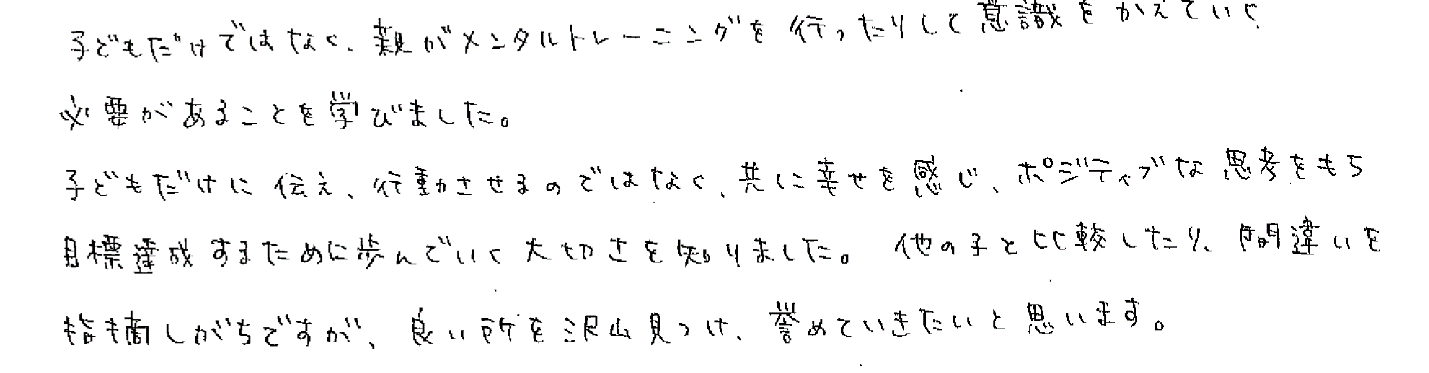 子どもだけではなく、親がメンタルトレーニングを行ったりして意識をかえていく
必要があることを学びました。
子どもだけに伝え、行動させるのではなく、共に幸せを感じ、ポジティブな思考をもち
目標達成するために歩んでいく大切さを知りました。 他の子と比較したり、間違いを
指摘しがちですが、良い所を沢山見つけ、誉めていきたいと思います。